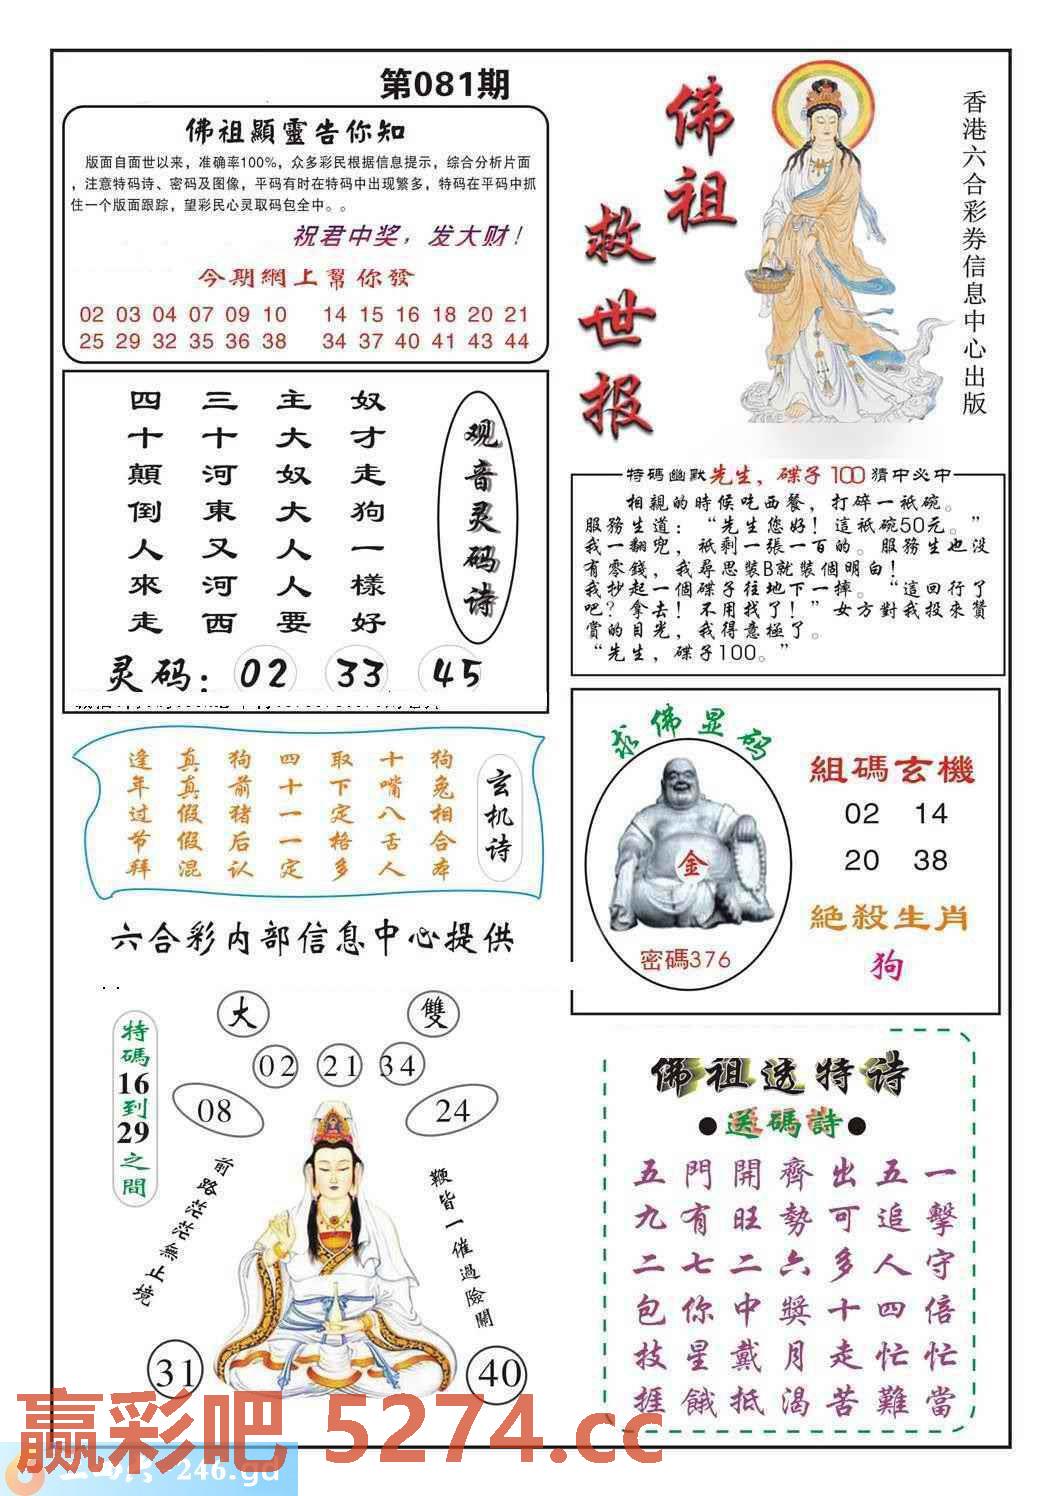 第081期
佛祖顯靈告你知
版面自面世以来，准确率100%，众多彩民根据信息提示，综合分析片面
，注意特码诗、密码及图像，平码有时在特码中出现繁多，特码在平码中抓
住一个版面跟踪，望彩民心灵取码包全中。。
祝君中奖，发大财！
今期網上幫你發
02 03 04 07 09 10 14 15 16 18 20 21
25 29 32 35 36 38 34 37 40 41 43 44
佛祖
救世报
香港六合彩券信息中心出版
观音灵码诗
奴才走狗一樣好
主大奴大人人要
三十河東又河西
四十顛倒人來走
灵码：02 33 45
特碼幽默先生，碟子100猜中必中
相親的時候吃西餐，打碎一祗碗。
服務生道：“先生您好！這祗碗50元。”
我一翻兜，祇剩一張一百的。服務生也没
有零錢，我尋思裝B就裝個明白！
我抄起一個碟子往地下一摔。“這回行了
吧？拿去！不用找了！”女方對我投來贊
賞的目光，我得意極了。
“先生，碟子100。”
玄机诗
狗兔相合本
十嘴八舌人
取下定格多
四十一一定
狗前猪后认
真真假假混
逢年过节拜
六合彩内部信息中心提供
求佛显码
金
密碼376
組碼玄機
02 14
20 38
絕殺生肖
狗
大
雙
02 21 34
08
24
特碼16到29之間
前路茫茫無止境
鞭皆一催過險關
31
40
佛祖透特诗
●送碼詩●
五門開齊出五一
九有旺勢可追擊
二七二六多人守
包你中獎十四倍
技星戴月走忙忙
捱餓抵渴苦難當
赢彩吧 5274.cc
246.gd